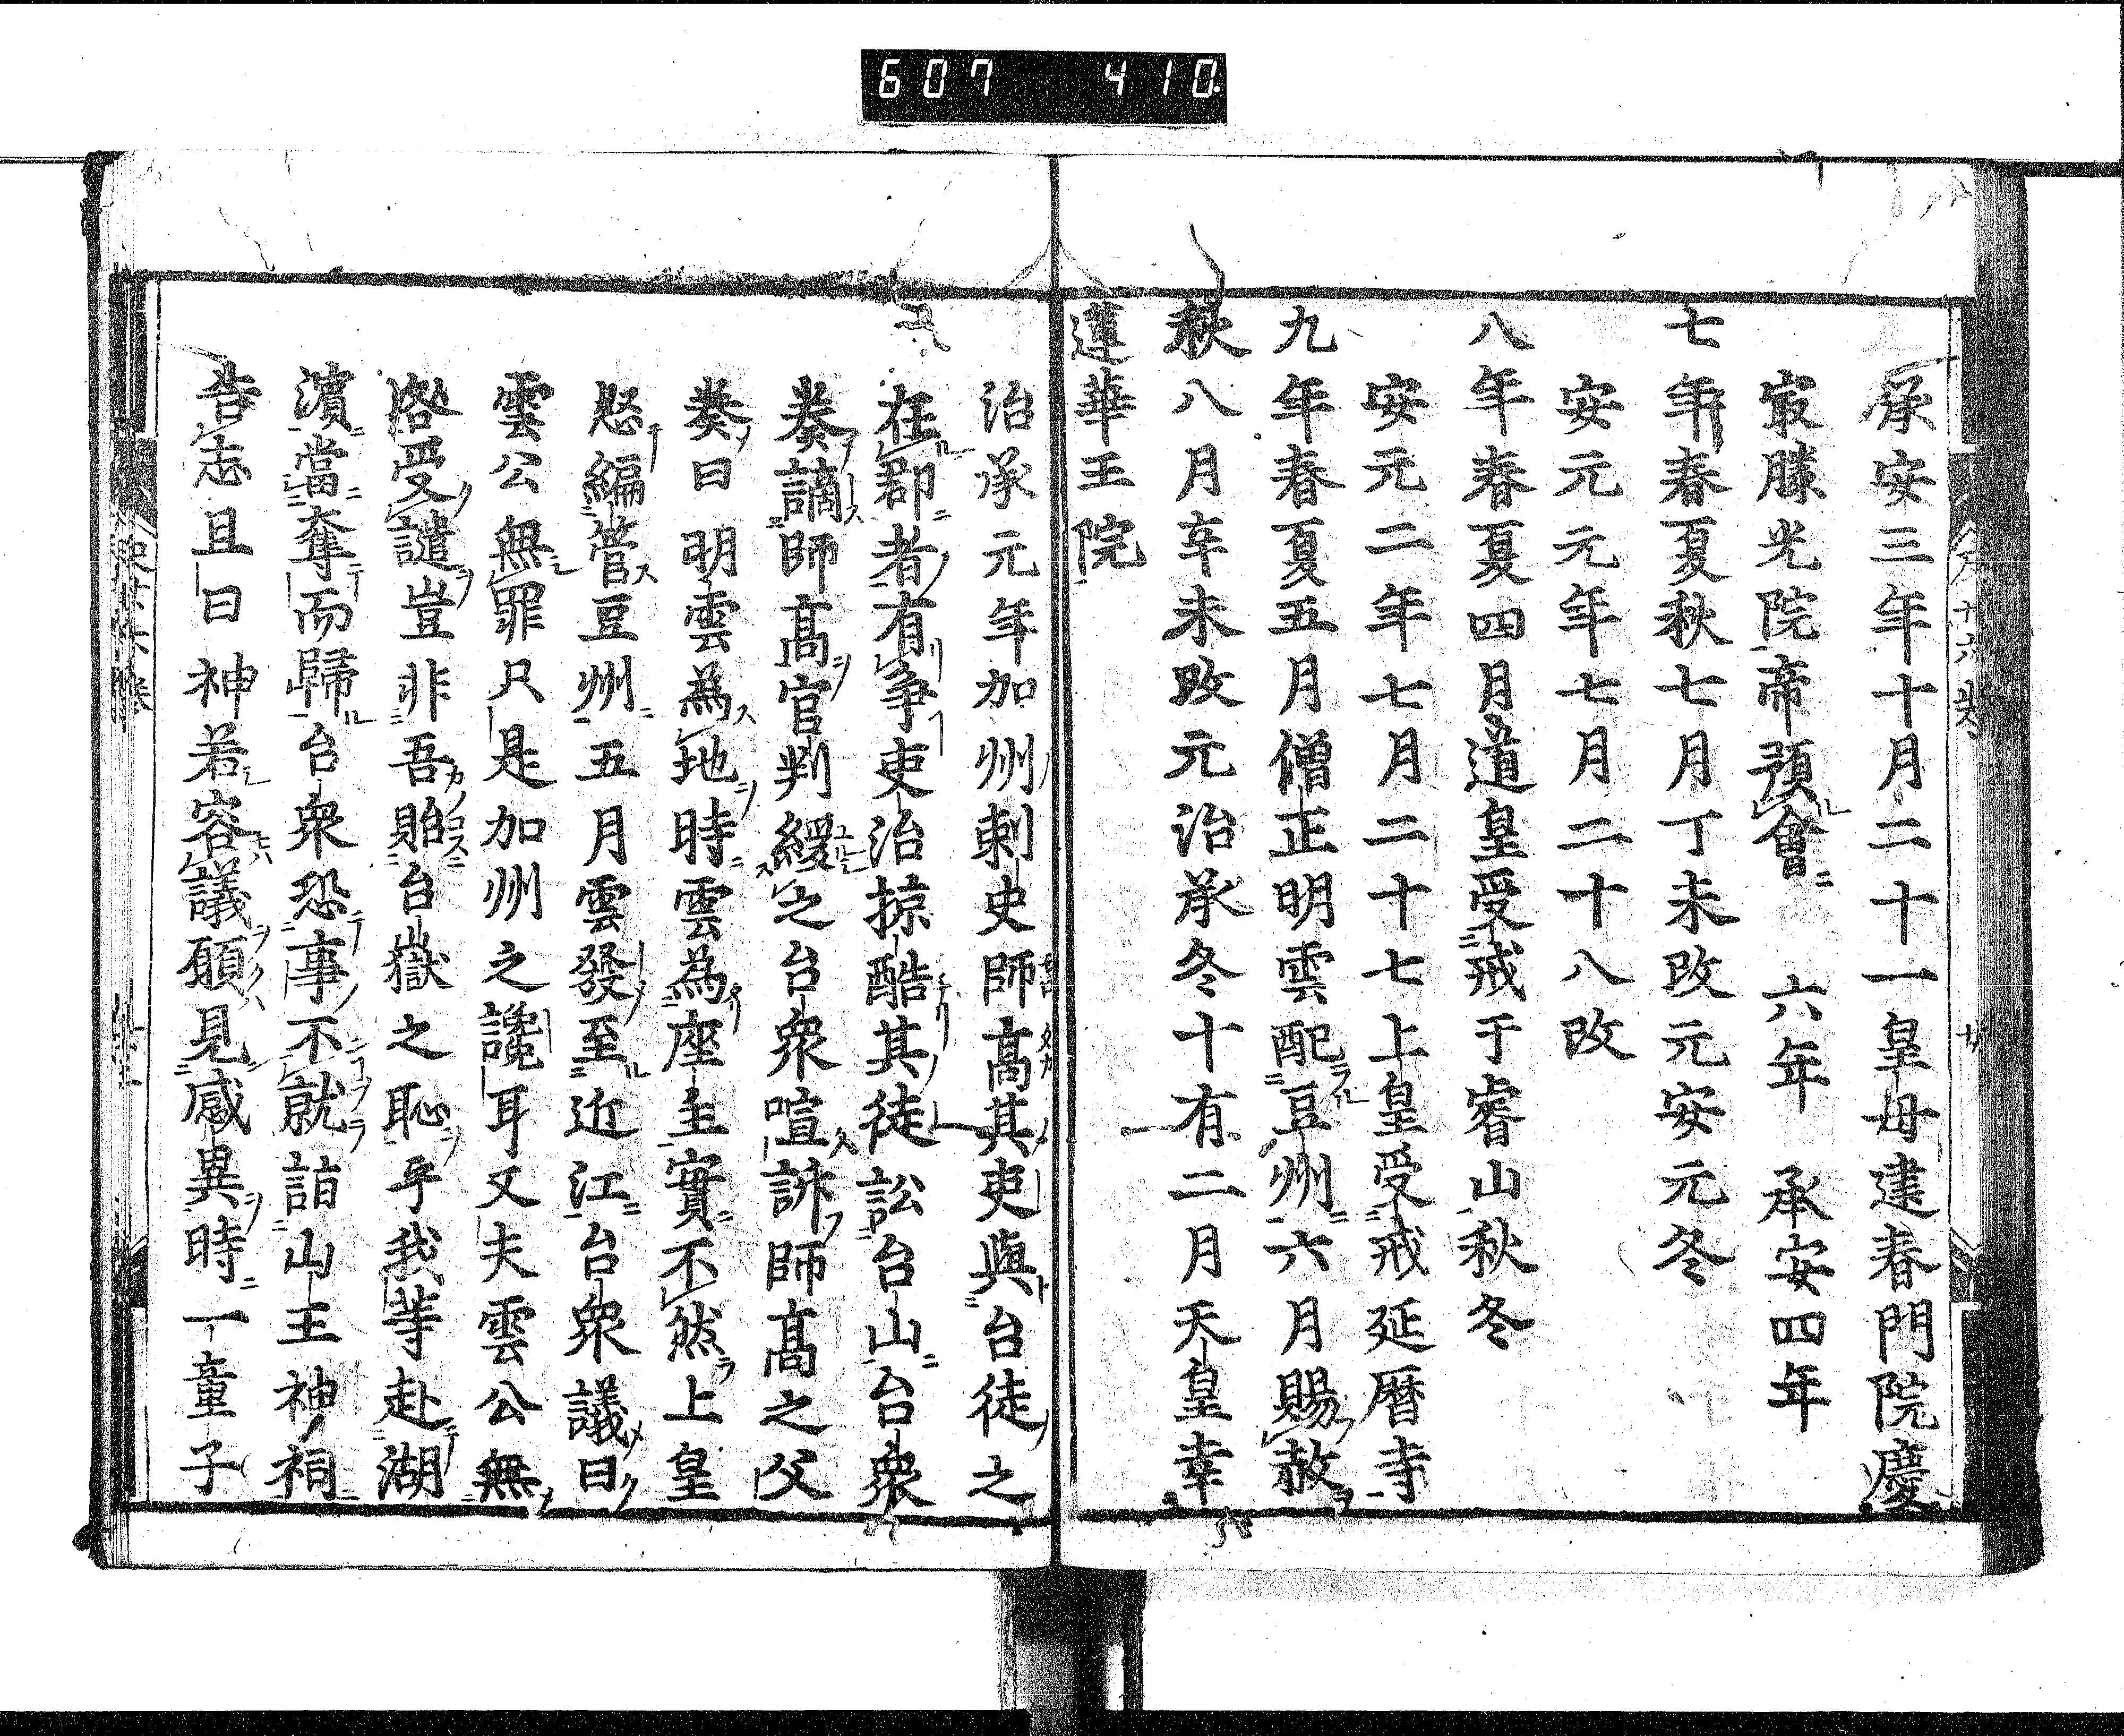 607 410
承安三年十月二十一皇母建春門院慶
㝡勝光院帝預會 六年 承安四年
七年春夏秋七月丁未改元安元冬
安元元年七月二十八改
八年春夏四月道皇受戒于睿山秋冬
安元二年七月二十七上皇受戒延暦寺
九年春夏五月僧正明雲配豆州六月賜赦
秋八月辛未改元治承冬十有二月天皇幸
蓮華王院
治承元年加州刺史師髙其吏與台徒之
在郡者有争吏治掠酷其徒訟台山台衆
奏謫師髙官判緩之台衆喧訴師髙之父
奏曰明雲為地時雲為座主實不然上皇
怒編管豆州五月雲發至近江台衆議曰
雲公無罪只是加州之讒耳又夫雲公無
咎受譴豈非吾貽台嶽之恥乎我等赴湖
濱當奪而歸台衆恐事不就詣山王神祠
告志且曰神若容議願見感異時一童子